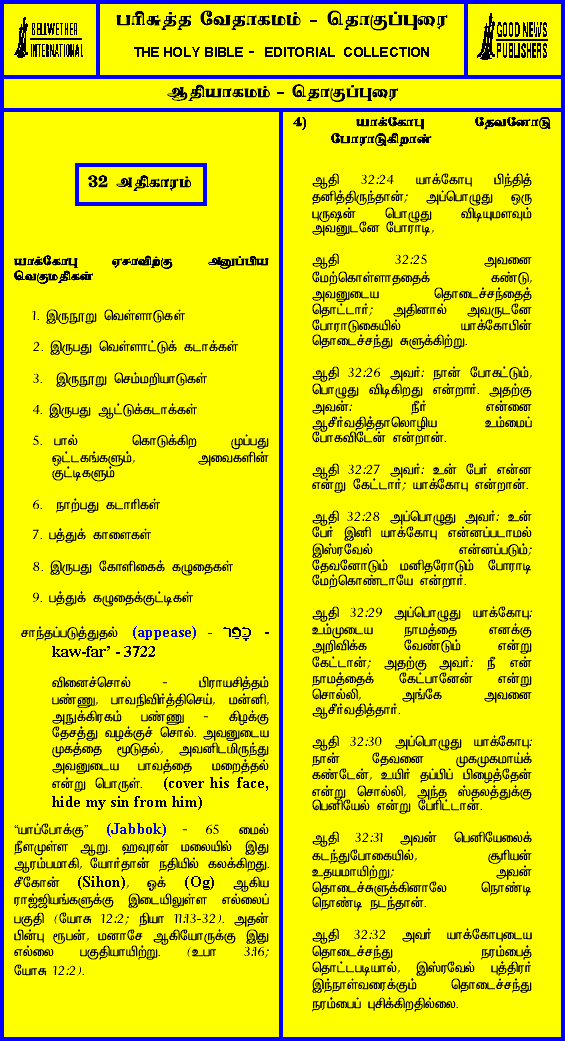 BELLWETHER
INTERNATIONAL
பரிசுத்த வேதாகமம் - தொகுப்புரை
THE HOLY BIBLE - EDITORIAL COLLECTION
GOOD NEWS
PUBLISHERS
ஆதியாகமம் - தொகுப்புரை
32 அதிகாரம்
யாக்கோபு ஏசாவிற்கு அனுப்பிய
வெகுமதிகள்
1. இருநூறு வெள்ளாடுகள்
2. இருபது வெள்ளாட்டுக் கடாக்கள்
3. இருநூறு செம்மறியாடுகள்
4. இருபது ஆட்டுக்கடாக்கள்
5. பால் கொடுக்கிற முப்பது
ஒட்டகங்களும், அவைகளின்
குட்டிகளும்
6. நாற்பது கடாரிகள்
7. பத்துக் காளைகள்
8. இருபது கோளிகைக் கழுதைகள்
9. பத்துக் கழுதைக்குட்டிகள்
சாந்தப்படுத்துதல் (appease) - כָּפַר -
kaw-far' - 3722
வினைச்சொல் - பிராயசித்தம்
பண்ணு, பாவநிவிர்த்திசெய், மன்னி,
அநுக்கிரகம் பண்ணு - கிழக்கு
தேசத்து வழக்குச் சொல். அவனுடைய
முகத்தை மூடுதல், அவனிடமிருந்து
அவனுடைய பாவத்தை மறைத்தல்
என்று பொருள். (cover his face,
hide my sin from him)
“யாப்போக்கு” (Jabbok) - 65 மைல்
நீளமுள்ள ஆறு. ஹவுரன் மலையில் இது
ஆரம்பமாகி, யோர்தான் நதியில் கலக்கிறது.
சீகோன் (Sihon), ஒக் (Og) ஆகிய
ராஜ்ஜியங்களுக்கு இடையிலுள்ள எல்லைப்
பகுதி (யோசு 12:2; நியா 11:13-32). அதன்
பின்பு ரூபன், மனாசே ஆகியோருக்கு இது
எல்லை பகுதியாயிற்று. (உபா 3:16;
யோசு 12:2).
4) யாக்கோபு தேவனோடு
போராடுகிறான்
ஆதி 32:24 யாக்கோபு பிந்தித்
தனித்திருந்தான்; அப்பொழுது ஒரு
புருஷன் பொழுது விடியுமளவும்
அவனுடனே போராடி,
ஆதி 32:25 அவனை
மேற்கொள்ளாததைக் கண்டு,
அவனுடைய தொடைச்சந்தைத்
தொட்டார்; அதினால் அவருடனே
போராடுகையில் யாக்கோபின்
தொடைச்சந்து சுளுக்கிற்று.
ஆதி 32:26 அவர்: நான் போகட்டும்,
பொழுது விடிகிறது என்றார். அதற்கு
அவன்: நீர் என்னை
ஆசீர்வதித்தாலொழிய உம்மைப்
போகவிடேன் என்றான்.
ஆதி 32:27 அவர்: உன் பேர் என்ன
என்று கேட்டார்; யாக்கோபு என்றான்.
ஆதி 32:28 அப்பொழுது அவர்: உன்
பேர் இனி யாக்கோபு என்னப்படாமல்
இஸ்ரவேல் என்னப்படும்;
தேவனோடும் மனிதரோடும் போராடி
மேற்கொண்டாயே என்றார்.
ஆதி 32:29 அப்பொழுது யாக்கோபு:
உம்முடைய நாமத்தை எனக்கு
அறிவிக்க வேண்டும் என்று
கேட்டான்; அதற்கு அவர்: நீ என்
நாமத்தைக் கேட்பானேன் என்று
சொல்லி, அங்கே அவனை
ஆசீர்வதித்தார்.
ஆதி 32:30 அப்பொழுது யாக்கோபு:
நான் தேவனை முகமுகமாய்க்
கண்டேன், உயிர் தப்பிப் பிழைத்தேன்
என்று சொல்லி, அந்த ஸ்தலத்துக்கு
பெனியேல் என்று பேரிட்டான்.
ஆதி 32:31 அவன் பெனியேலைக்
கடந்துபோகையில், சூரியன்
உதயமாயிற்று; அவன்
தொடைச்சுளுக்கினாலே நொண்டி
நொண்டி நடந்தான்.
ஆதி 32:32 அவர் யாக்கோபுடைய
தொடைச்சந்து நரம்பைத்
தொட்டபடியால், இஸ்ரவேல் புத்திரர்
இந்நாள்வரைக்கும் தொடைச்சந்து
நரம்பைப் புசிக்கிறதில்லை.